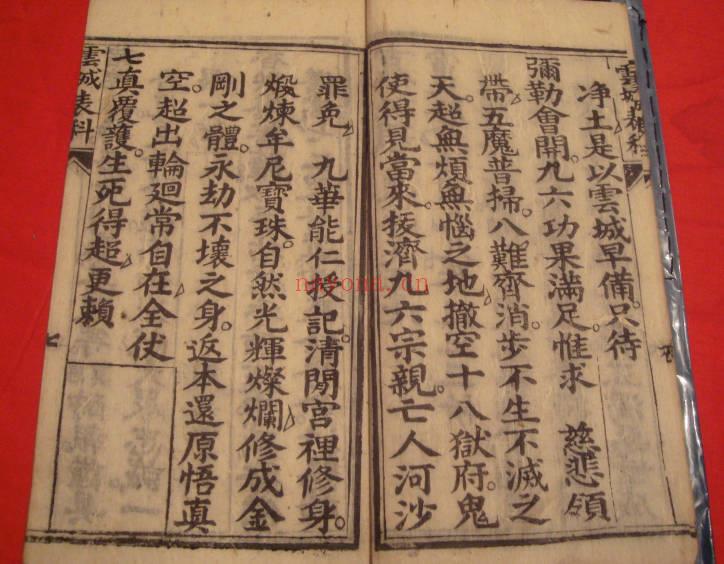 净土是以雲城早備。只待
彌勒會開。九六功果滿足。惟求 慈悲領
帶五魔普掃。八難齊消。步不生不滅之
天。超無煩無惱之地。撤空十八獄府。鬼
使得見當來。拔濟九六宗親。亡人河沙
罪免 九華能仁授記。清閒宮裡修身。
煅煉牟尼寶珠。自然光輝燦爛。修成金
剛之體。永劫不壞之身。返本還原悟真
空。超出輪廻常自在。全仗
七真覆護。生死得超。更賴
雲城表科
七
nayona.cn